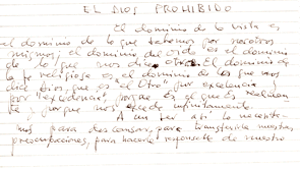 EL DIOS PROHIBIDO
El dominio de la vista es
el dominio de lo que vemos por nosotros
mismos; el dominio del oído es el dominio
de lo que nos dice otro. El dominio de
la fe religiosa es el dominio de lo que nos
dice Dios, que es el Otro "por excelencia"
por "excedencia", porque es el que es
y porque nos excede infinitamente.
A un ser así lo necesita-
mos para descansar, para transferirle nuestras
preocupaciones, para hacerlo responsable de nuestro